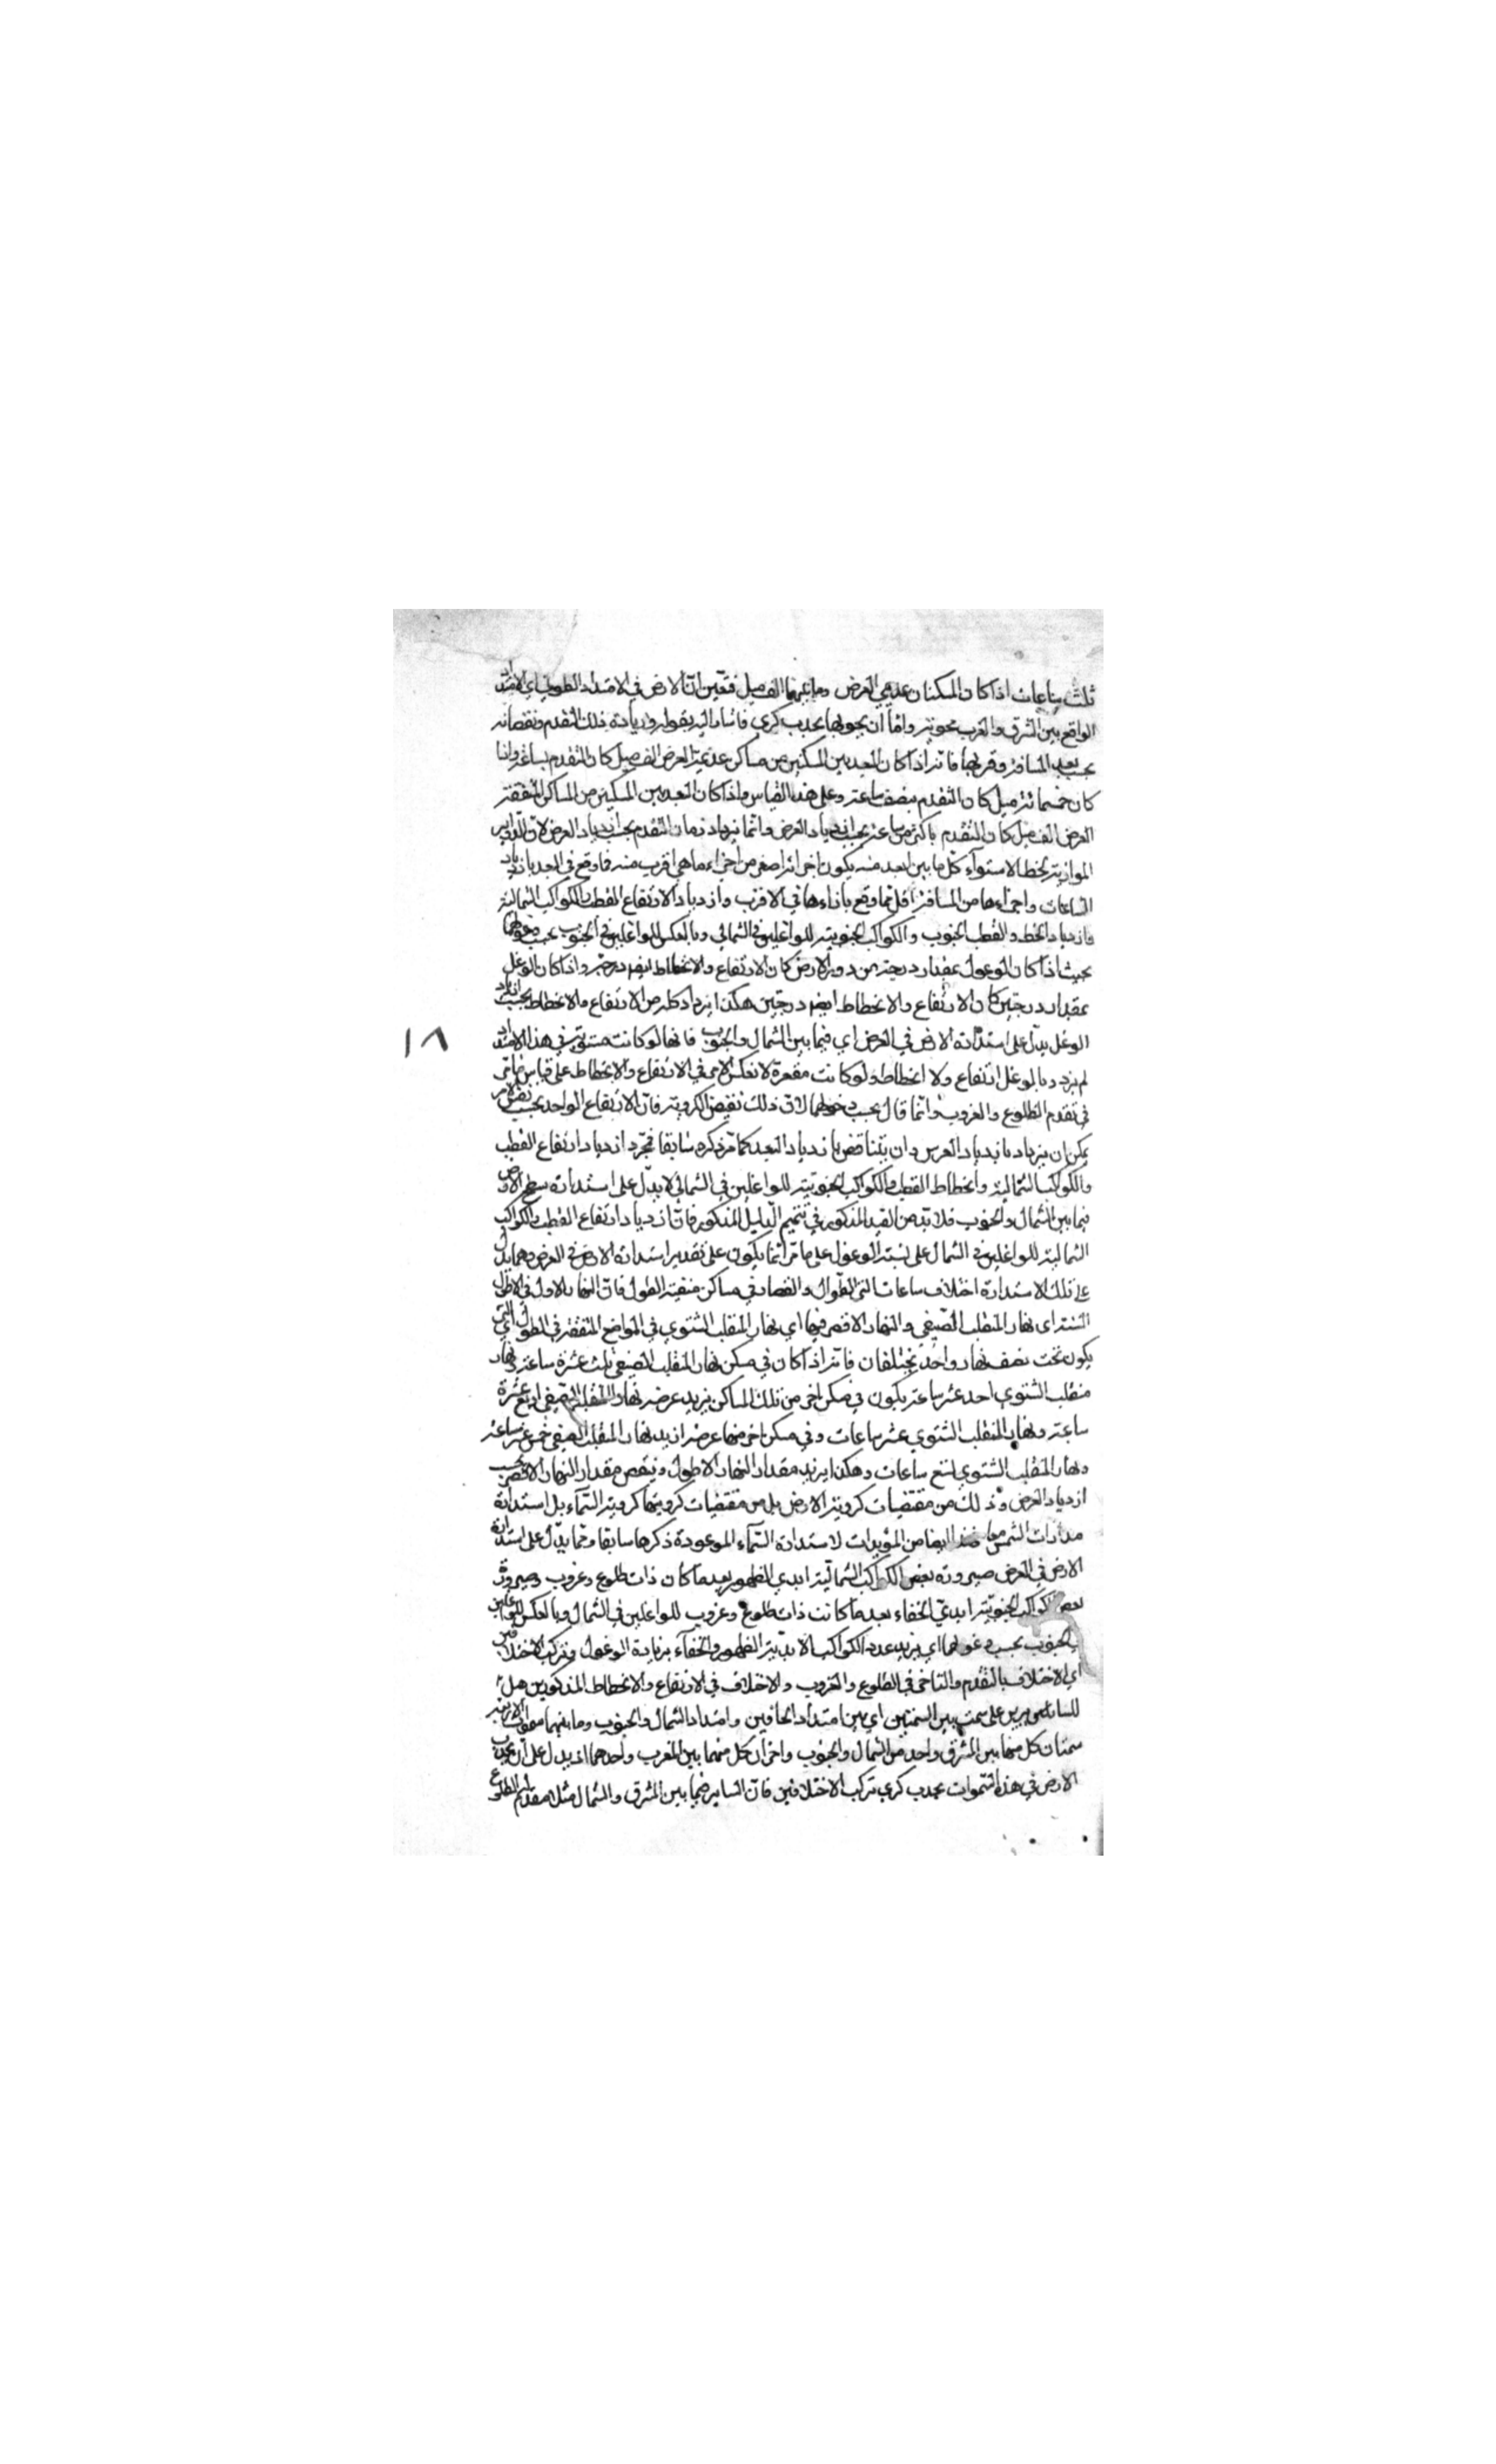 ثلث ساعات اذا كان المسكنان عديمي العرض وما بينهما الف ميل فتعين ان الارض في الامتداد الطولي اي الامتداد
الواقع بين الشرق والغرب محدبة واما ان تحديبها تحديب كري فاشار اليه بقوله وزيادة ذلك التقدم ونقصانه
بحسب بعد المسافة وقربها فانه اذا كان البعد بين المسكنين من مساكن عديمة العرض الف ميل كان التقدم بساعة واذا
كان خمسمائة ميل كان التقدم بنصف ساعة وعلى هذا القياس واذا كان البعد بين المسكنين من المساكن المتفقة
العرض الف ميل كان التقدم باكثر من ساعة بحسب ازدياد العرض وانما يزداد زمان التقدم بحسب ازدياد العرض لان الدواير
الموازية لخط الاستواء كل ما بين ابعد منه يكون اجزائه اصغر من اجزاء ما هي اقرب منه فما وقع في البعد بازدياد
الساعات واجزاءها من المسافة اقل مما وقع بازاءها في الاقرب وازدياد الارتفاع القطب والكواكب الشمالية
وازدياد انحطاط والقطب الجنوب والكواكب الجنوبية للواغلين في الشمالي وبالعكس للواغلين في الجنوب بحسب وغولهما
بحيث اذا كان الوغول بمقدار درجة من دور الارض كان الارتفاع والانحطاط ايضا درجة واذا كان الوغل
بمقدار درجتين كان الارتفاع والانحطاط ايضا درجتين هكذا يزداد كل من الارتفاع والانحطاط بحسب ازدياد
الوغل يدل على استدارة الارض في العرض اي فيما بين الشمال والجنوب فانها لو كانت مستوية في هذا الامتداد
لم يزدد بالوغل ارتفاع ولا انحطاط ولو كانت مقعرة لانعكس الامر في الارتفاع والانحطاط على قياس ما مر
في تقدم الطلوع والغروب وانما قال بحسب وغولهما لان ذلك نقيض الكروية فان الارتفاع الواحد بحسب نفس الامر
يمكن ان يزداد بازدياد العرض وان يتناقص بازدياد البعد كما مر ذكره سابقا فمجرد ازدياد ارتفاع القطب
والكواكب الشمالية وانحطاط القطب والكواكب الجنوبية للواغلين في الشمالي لا يدل على استدارة سطح الارض
فيما بين الشمال والجنوب فلا بد من القيد المذكور في تتميم الدليل المذكور فان ازدياد ارتفاع القطب والكواكب
الشمالية للواغلين في الشمال على نسبة الوغول على ما مر انما يكون على تقدير استدارة الارض في العرض ومما يدل
على تلك الاستدارة اختلاف ساعات النهر الطوال والقصار في مساكن متفقة الطول فان النهار الاول في الاطول
السنة اي نهار المنقلب الصيفي والنهار الاقصر فيها اي نهار المنقلب الشتوي في المواضع المتفقة في الطول التي
يكون تحت نصف نهار واحد يختلفان فانه اذا كان في مسكن نهار المنقلب الصيفي ثلث عشرة ساعة ونهار
منقلب الشتوي احد عشر ساعة يكون في مسكن اخر من تلك المساكن يزيد عرضه نهار المنقلب الصيفي اربع عشرة
ساعة ونهار المنقلب الشتوي عشر ساعات وفي مسكن اخر منهما عرضه ازيد نهار المنقلب الصيفي خمس عشر ساعة
ونهار المنقلب الشتوي تسع ساعات وهكذا يزيد مقدار النهار الاطول وينقص مقدار النهار الاقصر بحسب
ازدياد العرض وذلك من مقتضيات كروية الارض بل من مقتضيات كرويتها كروية السماء بل استدارة
مدارات الشمس معا فهذا ايضا من المؤيدات لاستدارة السماء الموعودة ذكرها سابقا ومما يدل على استدارة
الارض في العرض صيرورة بعض الكواكب الشمالية ابدي الظهور بعد ما كان ذات طلوع وغروب وصيرورة
بعض الكواكب الجنوبية ابدي الخفاء بعد ما كانت ذات طلوع وغروب للواغلين في الشمال وبالعكس للواغلين
في الجنوب بحسب وغولهما اي يزيد عدد الكواكب الابدية الظهور والخفاء بزيادة الوغول وتركب الاختلافين
اي الاختلاف بالتقدم والتاخر في الطلوع والغروب والاختلاف في الارتفاع والانحطاط المذكورين
للسايرين على سمت بين السمتين اي بين امتداد الخافقين وامتداد الشمال والجنوب وما بينهما سموت اربعة
سمتان كل منهما بين المشرق واحد من الشمال والجنوب واخران كل منهما بين المغرب واحدهما اذ يدل على ان تحديب
الارض في هذه السموات تحديب كري تركب الاختلافين فان الساير فيما بين المشرق والشمال مثلا يتقدم له الطلوع
١٨